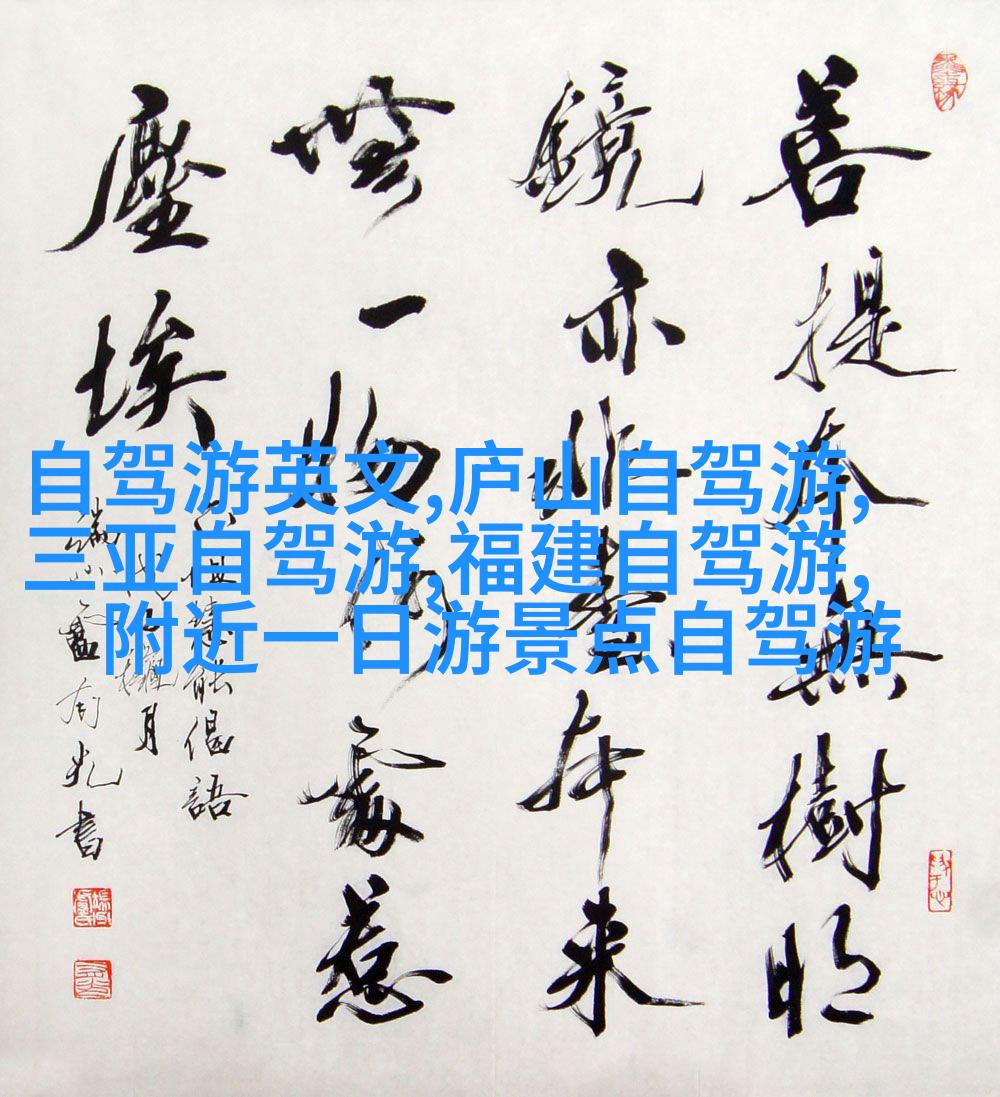 自驾游英文,庐山自驾游,
三亚自驾游,福建自驾游,
附近一日游景点自驾游
菩提本無樹明
鏡亦非臺本来
無一物何處惹
塵埃
慧能偈語
月
書